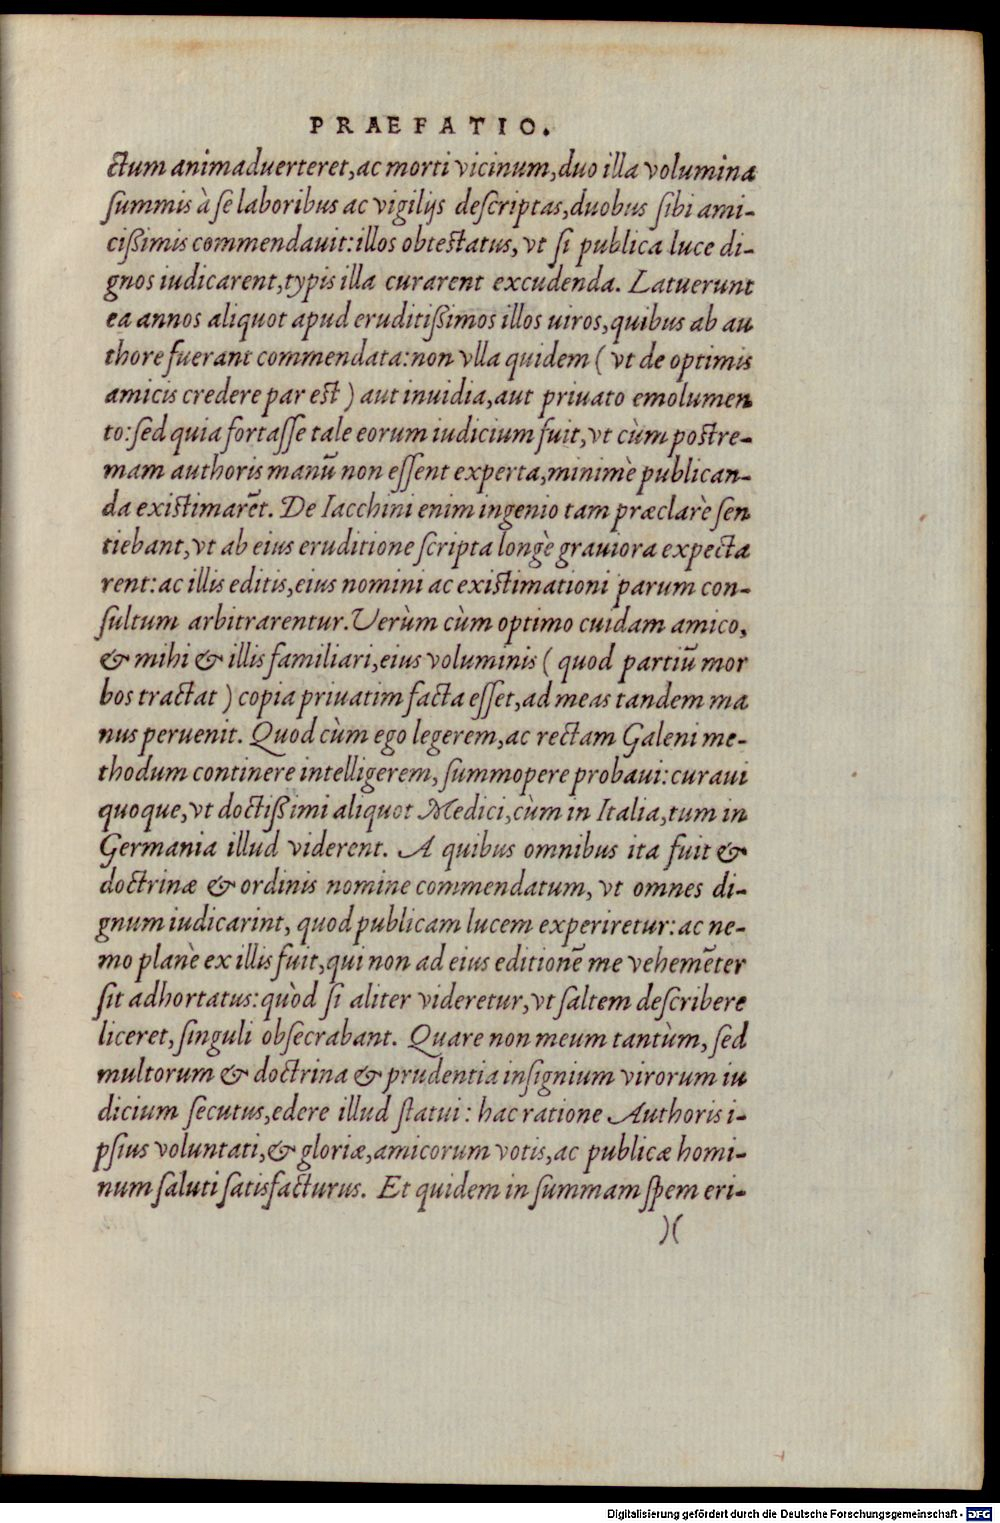 PRAEFATIO.
ctum animaduerteret, ac morti vicinum, duo illa volumina
summis à se laboribus ac vigilijs descriptas, duobus sibi ami-
cißimis commendauit: illos obtestatus, vt si publica luce di-
gnos iudicarent, typis illa curarent excudenda. Latuerunt
ea annos aliquot apud eruditißimos illos uiros, quibus ab au
thore fuerant commendata: non vlla quidem ( vt de optimis
amicis credere par est ) aut inuidia, aut priuato emolumen
to: sed quia fortasse tale eorum iudicium fuit, vt cùm postre-
mam authoris manū non essent experta, minimè publican-
da existimarēt. De Iacchini enim ingenio tam præclarè sen
tiebant, vt ab eius eruditione scripta longè grauiora expecta
rent: ac illis editis, eius nomini ac existimationi parum con-
sultum arbitrarentur. Verùm cùm optimo cuidam amico,
& mihi & illis familiari, eius voluminis ( quod partiū mor
bos tractat ) copia priuatim facta esset, ad meas tandem ma
nus peruenit. Quod cùm ego legerem, ac rectam Galeni me-
thodum continere intelligerem, summopere probaui: curaui
quoque, vt doctißimi aliquot Medici, cùm in Italia, tum in
Germania illud viderent. A quibus omnibus ita fuit &
doctrinæ & ordinis nomine commendatum, vt omnes di-
gnum iudicarint, quod publicam lucem experiretur: ac ne-
mo planè ex illis fuit, qui non ad eius editionē me vehemēter
sit adhortatus: quòd si aliter videretur, vt saltem describere
liceret, singuli obsecrabant. Quare non meum tantùm, sed
multorum & doctrina & prudentia insignium virorum iu
dicium secutus, edere illud statui: hac ratione Authoris i-
psius voluntati, & gloriæ, amicorum votis, ac publicæ homi-
num saluti satisfacturus. Et quidem in summam spem eri-
)(
Digitalisierung gefördert durch die Deutsche Forschungsgemeinschaft - DFG